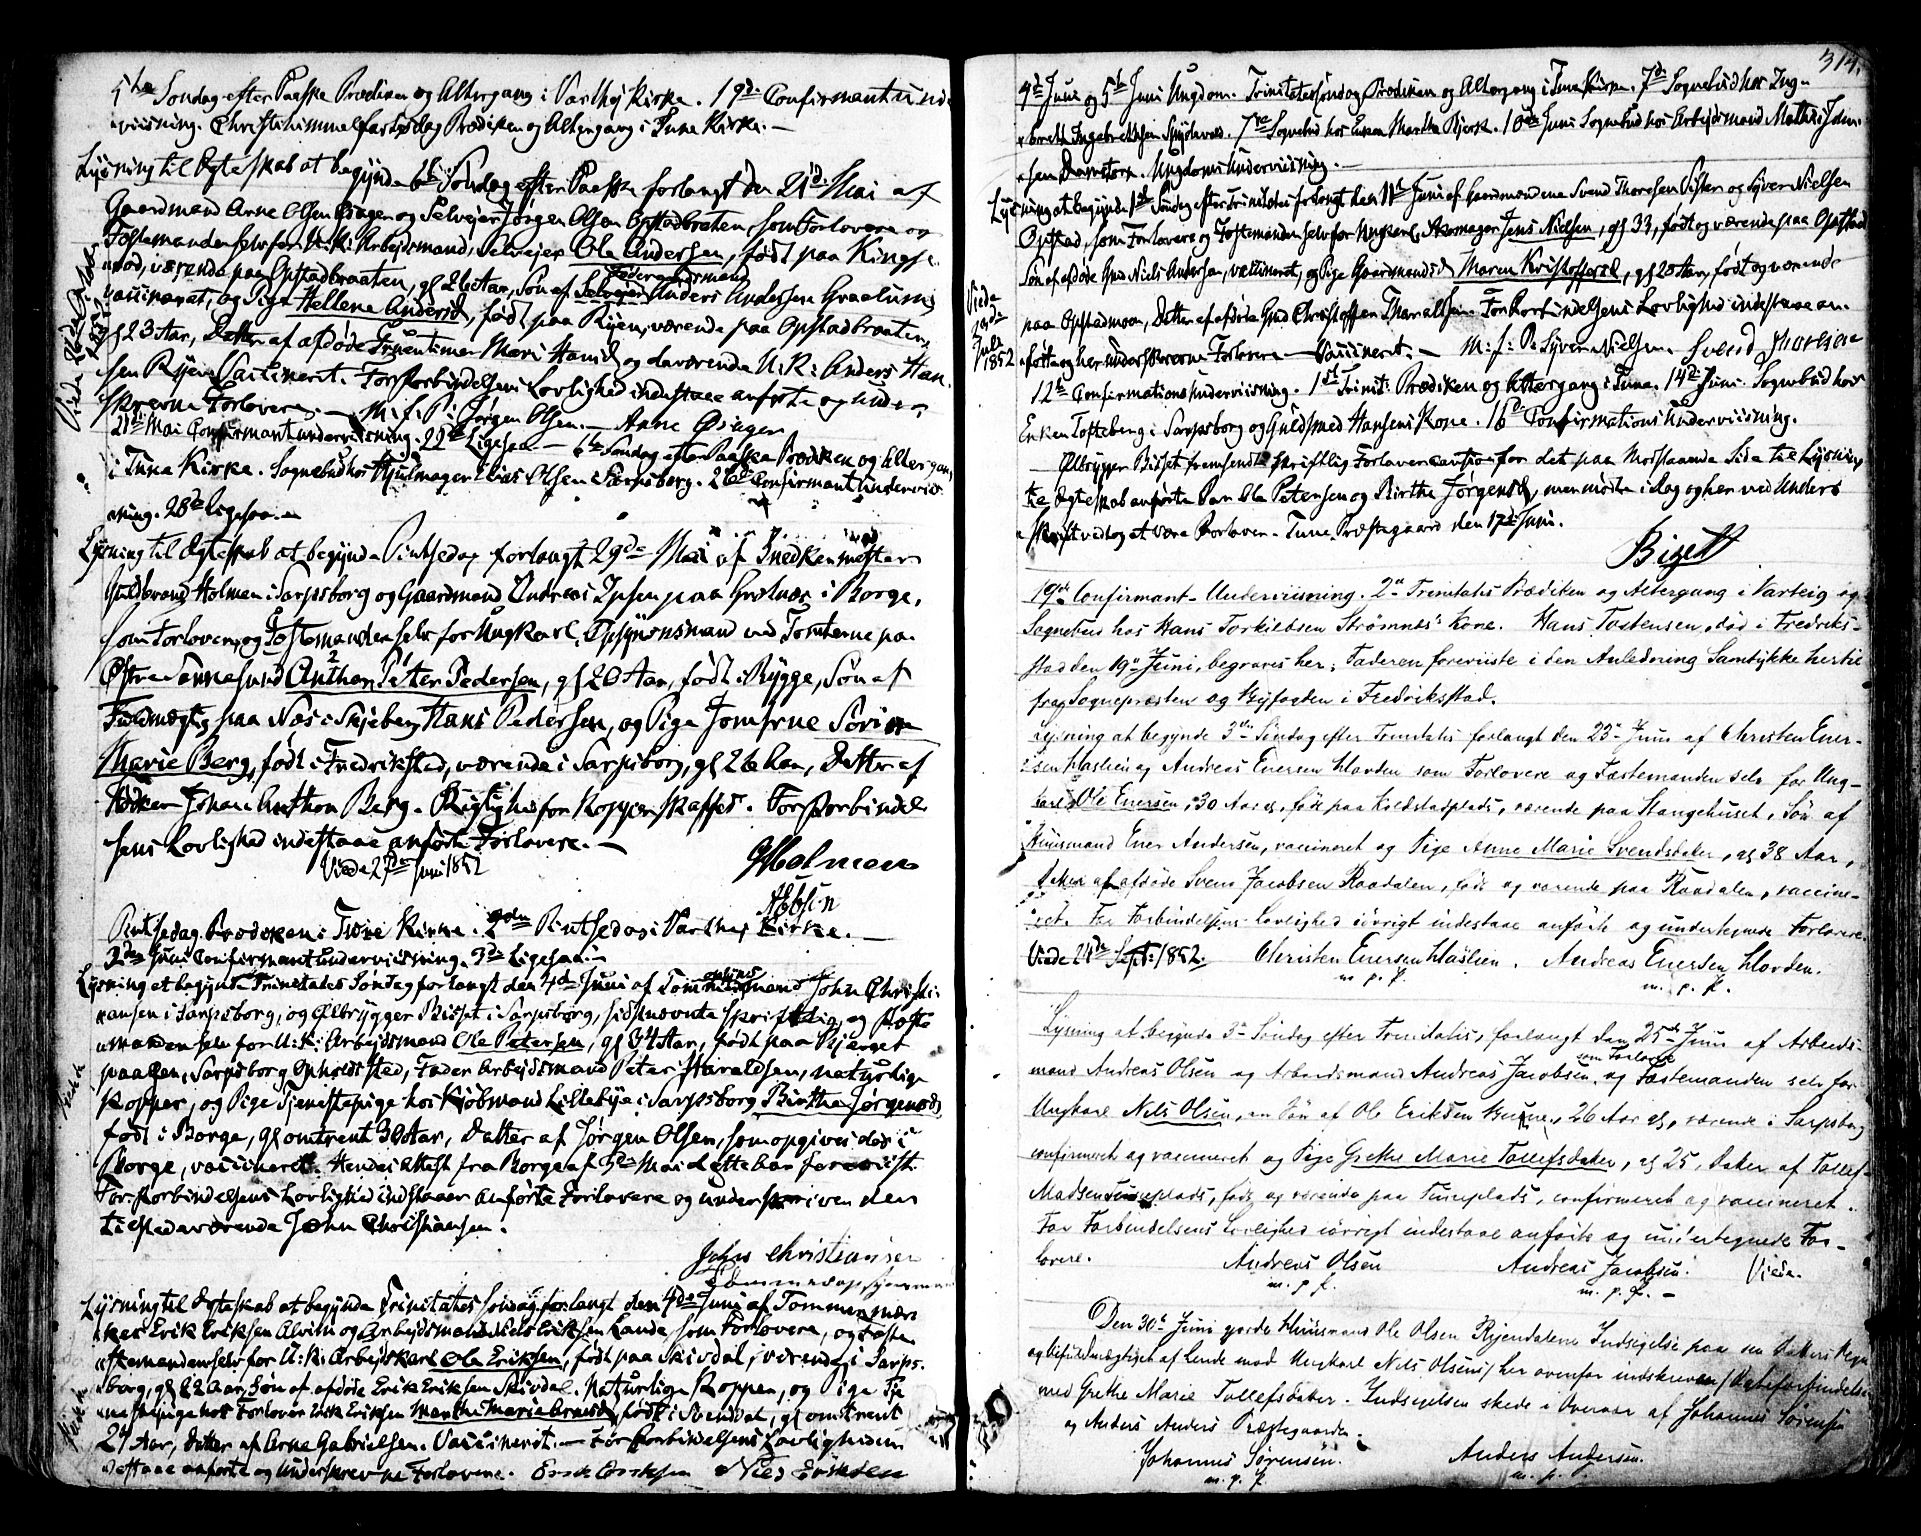 5te Søndag efter Paaske Prædiken og Altergang i Varthej Kirke. 19de Confirmantund-
viisning. Christihimmelfartsdag Prædiken og Altergang i Tune Kirke.—
Lysning til Ægteskab at begynde 6te Søndag efter Paaske forlangt den 21de Mai af
Gaardmand Arne Olsen Øiagen og Selveier Jørgen Olsen Opstadbraaten, som Forlovere og
Fæstemanden selv for U.K. Arbejdsmand, Selvejer Ole Andersen, født paa
værende paa Opstadbraaten, gl 26 Aar, Søn af Selvejer Anders Andersen Graalum,
vaccineret, og Pige Hellene Andersd, født paa Ryen, værende paa Opstadbraaten,
gl 23 Aar, Datter af afdøde Fruentimer Mari Hansd og daværende U.K: Anders Han-
sen Ryen Vaccineret. For Forbindelsens Lovlighed indestaae anførte og under-
skrevne Forlovere.— M.f.P. Jørgen Olsen.— Arne Øiagen
21de Mai Confirmantunderviisning. 22de Ligesaa— 6te Søndag efter Paaske Prædiken og Altergang
i Tune Kirke. Sognebud hos Hjulmager Elias Olsen i Sarpsborg. 26de Confirmantundervis-
ning. 28de Ligesaa.—
Lysning til Ægteskab at begynde Pintsedag forlangt 29de Mai af Snedkermester
Guldbrand Holmen i Sarpsborg og Gaardmand Andreas Ipsen paa Grolnæs i Borge,
som Forlovere, og Fæstemanden selv for Ungkarl, Opsynsmand ved Tomterne paa
Østre Sannesund Anthon Peter Pedersen, gl 20 Aar, født i Rygge, Søn af
Fuldmægtig paa Næs i Skjeberg Hans Pedersen, og Pige Jomfrue Sovine
Marie Berg, født i Fredrikstad, værende i Sarpsborg, gl 26 Aar, Datter af
Høker Johan Anthon Berg. Rigtighed for Kopper skaffes. For Forbindel-
sens Lovlighed indestaae anførte Forlovere.—
Viede 27de Juni 1852
GHolmen
AIbsen
Pintsedag Prædiken i Tune Kirke. 2den Pintsedag i Varthej Kirke.—
2den Juni Confirmantunderviisning. 3de Ligesaa—
Lysning at begynde Trinitates Søndag forlangt den 4de Juni af Tommermand John Christi-
ansen i Sarpsborg, og Ølbrygger Bisset i Sarpsborg, sidstnævnte skriftlig, og Fæste-
manden selv for U:K: Arbejdsmand Ole Petersen, gl 34 Aar, født paa
paa Sarpsborg Opholdssted, Fader Arbejdsmand Peter Haraldsen, naturlige
Kopper, og Pige Tjenestepige hos Kjøbmand Lilleby i Sarpsborg Birthe Jørgensd,
født i Borge, gl omtrent 30 Aar, Datter af Jørgen Olsen, som opgives død i
Borge, vaccineret. Hendes Attest fra Borge af 5te Mai dette har foreviist.
For Forbindelsens Lovlighed indstaaer anførte Forlovere og underskriven den
tilstedeværende John Christiansen.
John Christiansen
Lysning til Ægteskab at begynde Trinitates Søndag forlangt den 4de Juni af Tommermær-
ker Erik Eriksen Alvim og Arbejdsmand Niels Eriksen Lande, som Forlovere, og Fæste-
manden selv for U:K: Arbejdskarl Ole Eriksen, født paa Skivdal, værende i Sarps-
borg, gl 22 Aar, Søn af afdøde Erik Eriksen Skivdal. Naturlige Kopper, og Pige Tje-
nestepige hos Forlover Erik Eriksen Marthe Marie Arnesd, født i Svendal, gl omtrent
24 Aar, Datter af Arne Gabrielsen. Vaccineret.— For Forbindelsens Lovlighed in-
destaae anførte og underskrevne Forlovere. Erik Eriksen Niels Eriksen
314.
4de Juni og 5te Juni Ungdom. Trinitatissøndag Prædiken og Altergang i Tune Kirke. 7de Sognebud hos Inge-
brett Ingebrettsen 7de Sognebud hos Enken Marthe Bjerk. 10de Juni Sognebud hos Arbejdsmand Mathis Iden-
sen Ungdoms Underviisning.—
Lysning at begynde 1ste Søndag efter Trinitates forlangt den 11te Juni af Gaardmændene Svend Thoresen Vister og Syver Nielsen
Opstad, som Forlovere og Fæstemanden selv for Ungkarl, Skomager Jens Nielsen, gl 33, født og værende paa Opstad,
Søn af afdøde Gmd Niels Andersen, vaccineret, og Pige Gaarmandsd Maren Kristoffersd, gl 20 Aar, født og værende
paa Opstadmoen, Datter af afdøde Gmd Christoffer Tharaldsen. For Forbindelsens Lovlighed indestaae an-
førte og her underskrevne Forlovere— Vaccineret.— M:f:P. Syver Nielsen. Svend Thoresen
Viede
Juli
1852
12te Confirmationsunderviisning. 1ste Trinit: Prædiken og Altergang i Tune. 14de Juni Sognebud hos
Enken Tofteberg i Sarpsborg og Guldsmed Hansens Kone. 16de Confirmations Underviisning.
Ølbrygger Bisset fremsendte skriftlig Forlovercaution for det paa modstaaende Side til Lysning
til Ægteskab anførte Par Ole Petersen og Birthe Jørgensd, men mødte i dag og her ved Under-
skrift vedtog at være Forlover. Tune Præstegaard den 17de Juni.
Bisett
19de Confirmant-Underviisning. 2n Trinitatis Prædiken og Altergang i Varteig og
Sognebud hos Hans Torkildsen Strømnæs' Kone. Hans Tostensen, død i Fredriks-
stad den 19de Juni, begraves her; Faderen foreviiste i den Anledning Samtykke hertil
fra Sognepræsten og Byfogden i Fredriksstad.
Lysning at begynde 3die Søndag efter Trinitatis forlangt den 23de Juni af Christen Ener-
sen Haslien og Andreas Enersen Hovden som Forlovere og Fæstemanden selv for Ung-
karl Ole Enersen, 30 Aar gl, født paa Koldstadplads, værende paa Stangehuset, Søn af
Huusmand Ener Andersen, vaccineret og Pige Anne Marie Svendsdatter, gl 38 Aar,
Datter af afdøde Svend Jacobsen Raadalen, født og værende paa Raadalen, vaccine-
ret. For Forbindelsens Lovlighed iøvrigt indestaae anførte og undertegnede Forlovere.
Viede 24de Sept: 1852. Christen Enersen Haslien. Andreas Enersen Hovden.
m. p. f. m. p. f.
Lysning at begynde 3de Søndag efter Trinitatis, forlangt den 25de Juni af Arbeids-
mand Andreas Olsen og Arbeidsmand Andreas Jacobsen som Forlovere og Fæstemanden selv for
Ungkarl Nils Olsen, en Søn af Ole Eriksen 26 Aar gl, værende i Sarpsborg
confirmeret og vaccineret og Pige Grethe Marie Tollefsdatter, gl 25, Datter af Tollef
Madsen Tuneplads, født og værende paa Tuneplads, confirmeret og vaccineret.
For Forbindelsens Lovlighed iøvrigt indestaae anførte og undertegnede For-
lovere. Andreas Olsen Andreas Jacobsen. Viede.
m. p. f. m. p. f. —
Den 30te Juni gjorde Huusmand Ole Olsen Ryendalen Indsigelse paa sin Datters Vegne
og befuldmægtiget af hende mod Ungkarl Nils Olsens (her ovenfor indskreven) Ægteforbindelse
med Grethe Marie Tollefsdatter. Indsigelsen skede i Overvær af Johannes Sørensen
og Anders Anders Præstegaarden.
Johannes Sørensen. Anders Andersen.
m. p. f. m. p.